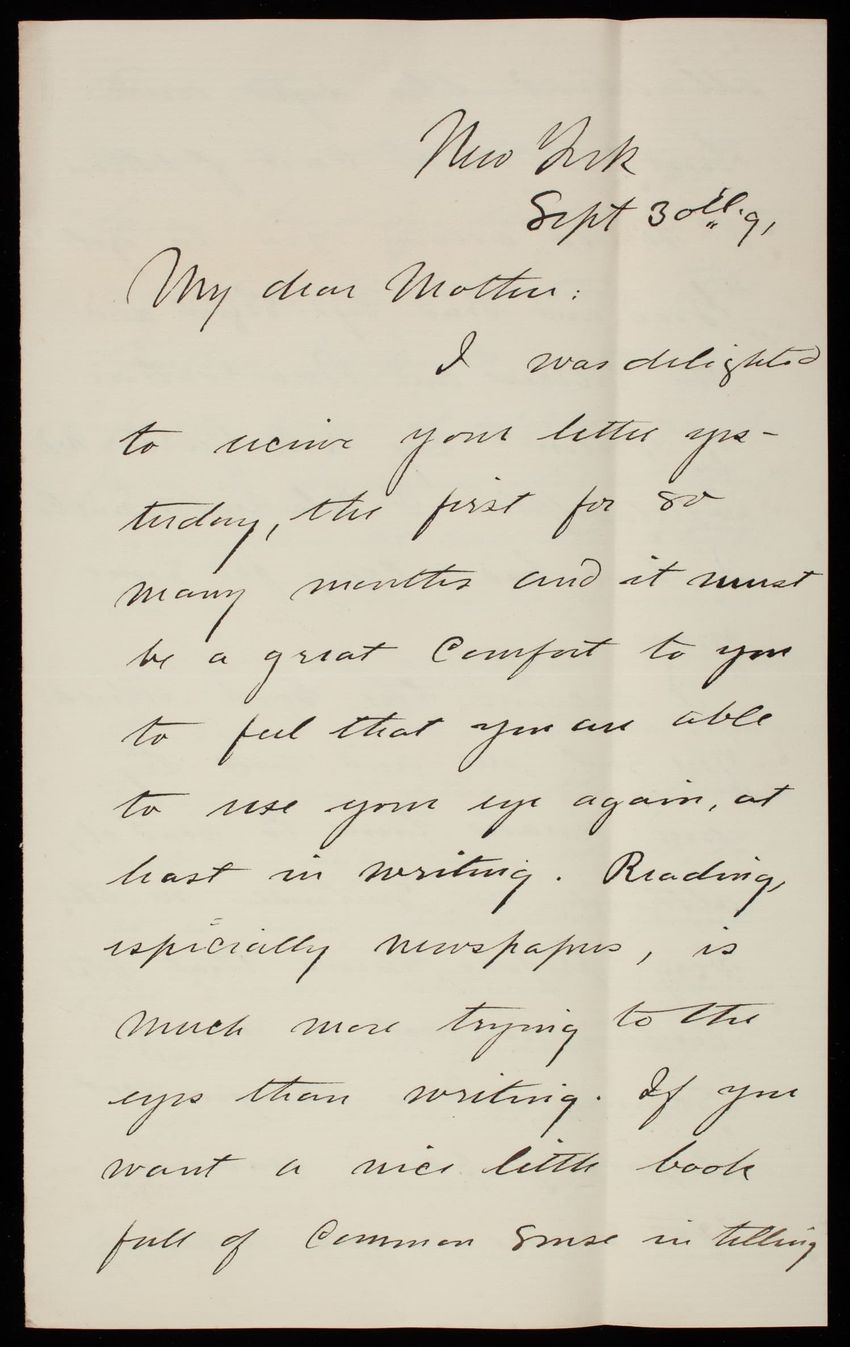 New York
Sept 30th 91
My dear Mother:
I was delighted
to receive your letter yes-
terday, the first for so
many months and it must
be a great comfort to you
to feel that you are able
to use your eye again, at
least in writing. Reading,
especially newspapers, is
much more trying to the
eyes than writing. If you
want a nice little book
full of Common Sense in telling